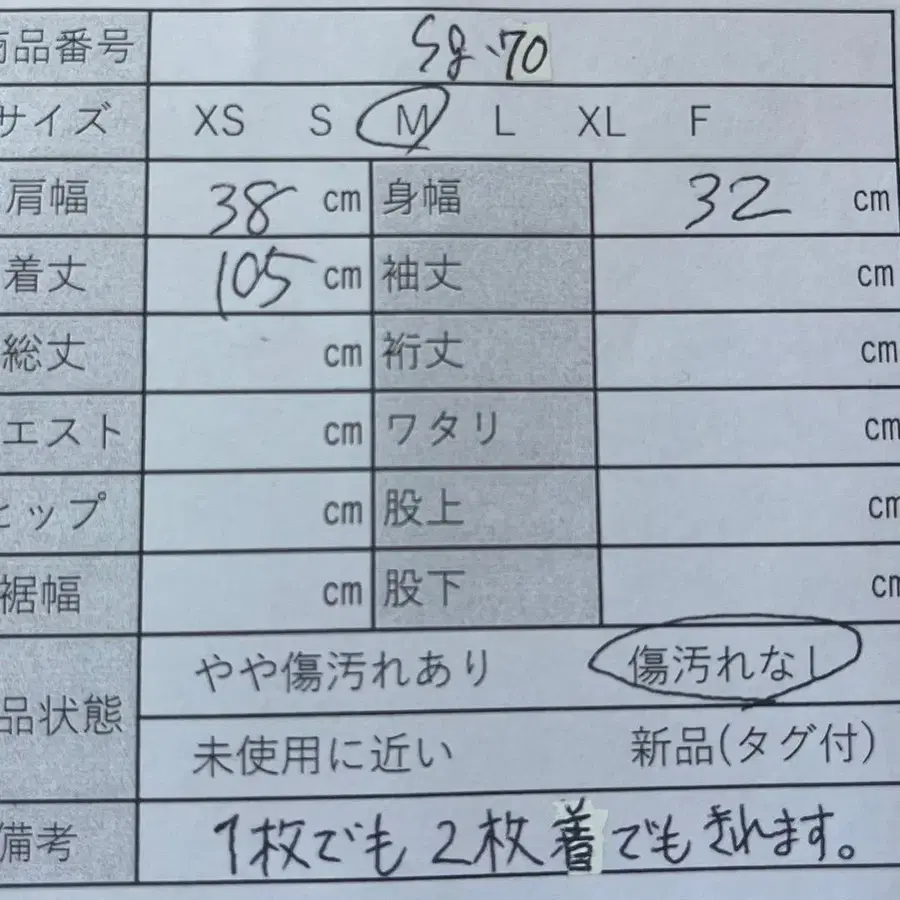 商品番号 Sg-70
サイズ XS S M L XL F
肩幅 38 cm 身幅 32 cm
着丈 105 cm 袖丈 cm
総丈 cm 裄丈 cm
エスト cm ワタリ cm
ヒップ cm 股上 cm
裾幅 cm 股下 cm
品状態 やや傷汚れあり 傷汚れなし
未使用に近い 新品(タグ付)
備考 1枚でも2枚着でもきれます。